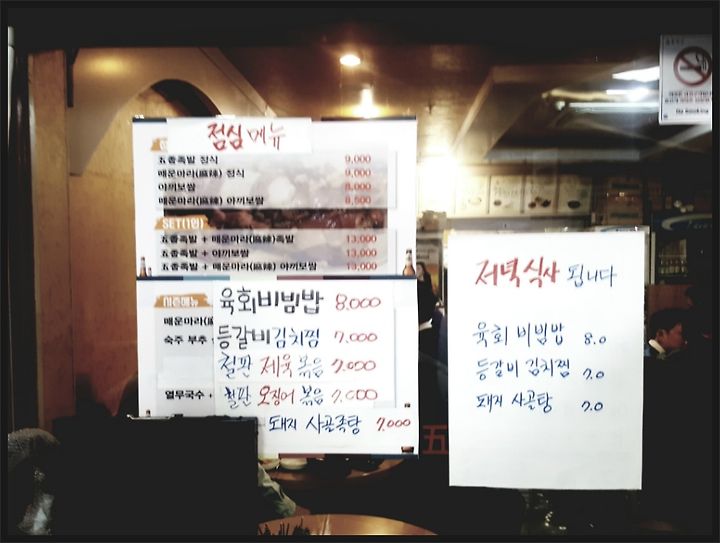 점심메뉴
五香족발 정식 9,000
매운마라(麻辣) 정식 9,000
야끼보쌈 8,000
매운마라(麻辣) 야끼보쌈 8,500
SET(1인)
五香족발 + 매운마라(麻辣)족발 13,000
五香족발 + 야끼보쌈 13,000
五香족발 + 매운마라(麻辣) 야끼보쌈 13,000
육회비빔밥 8.000
매운마라(麻
등갈비김치찜 7.000
숙주 부추
철판 제육볶음 7.000
철판 오징어 볶음 7.000
열무국수 +
돼지 사골족탕 7.000
저녁식사 됩니다
육회 비빔밥 8.0
등갈비 김치찜 7.0
돼지 사골탕 7.0
五